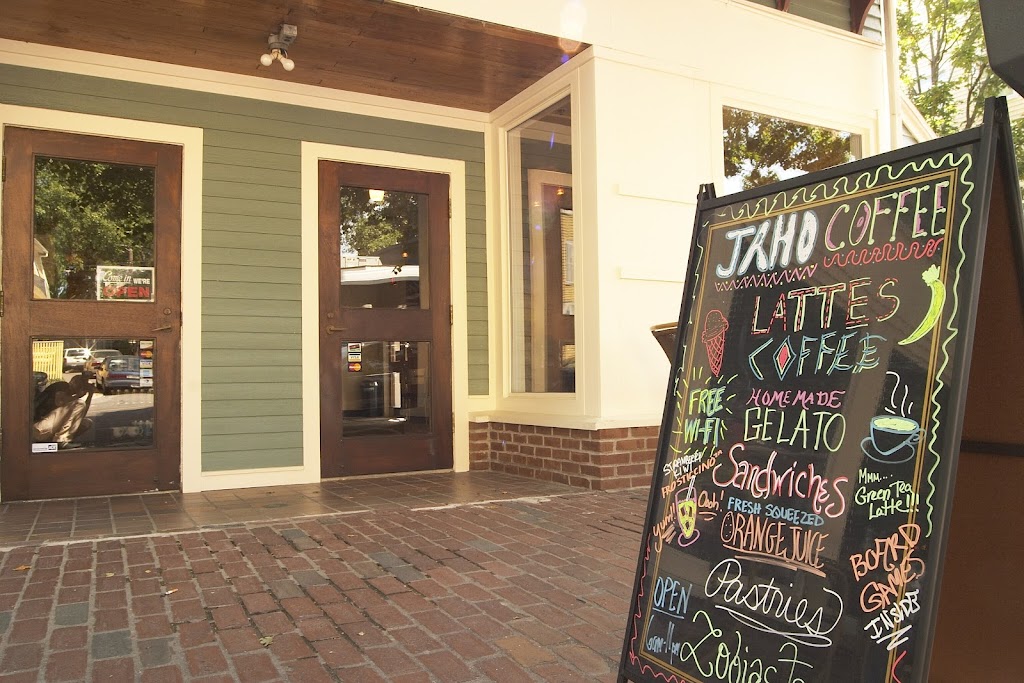 Come in WE'RE
OPEN
JAHO COFFEE
LATTES
COFFEE
FREE
WI-FI
HOMEMADE
GELATO
STRAWBERRY
KIWI
Sandwiches
Mmm...
Green Tea
Latte!!!
Yum!
Ooh!
FRESH SQUEEZED
ORANGE JUICE
BOARD
GAMES
INSIDE
Pastries
OPEN